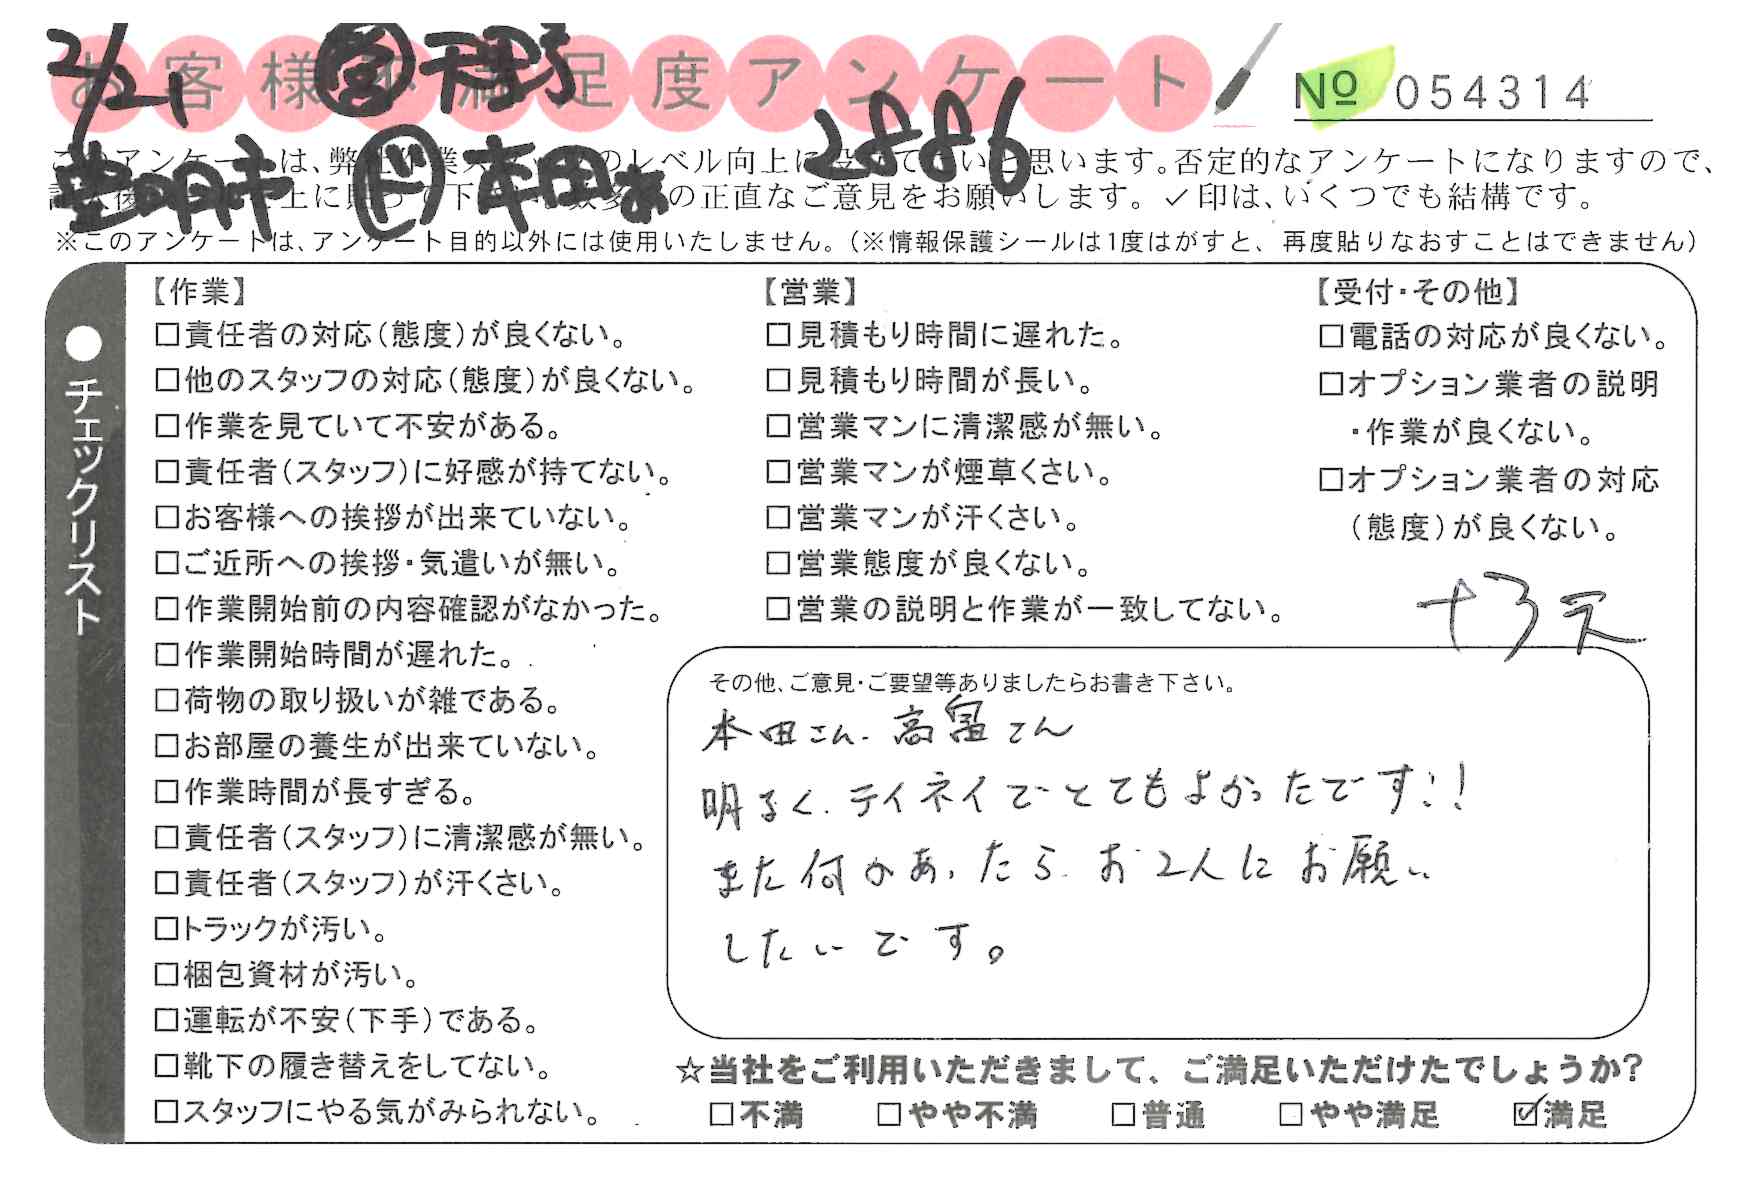 2/21 営 天野
お客様不満足度アンケート
No 054314
2886
豊明市 ド 本田
このアンケートは、弊社作業スタッフのレベル向上に役立てたいと思います。否定的なアンケートになりますので、
上に貼って下 の正直なご意見をお願いします。✓印は、いくつでも結構です。
※このアンケートは、アンケート目的以外には使用いたしません。(※情報保護シールは1度はがすと、再度貼りなおすことはできません)
●チェックリスト
【作業】
□責任者の対応(態度)が良くない。
□他のスタッフの対応(態度)が良くない。
□作業を見ていて不安がある。
□責任者(スタッフ)に好感が持てない。
□お客様への挨拶が出来ていない。
□ご近所への挨拶・気遣いが無い。
□作業開始前の内容確認がなかった。
□作業開始時間が遅れた。
□荷物の取り扱いが雑である。
□お部屋の養生が出来ていない。
□作業時間が長すぎる。
□責任者(スタッフ)に清潔感が無い。
□責任者(スタッフ)が汗くさい。
□トラックが汚い。
□梱包資材が汚い。
□運転が不安(下手)である。
□靴下の履き替えをしてない。
□スタッフにやる気がみられない。
【営業】
□見積もり時間に遅れた。
□見積もり時間が長い。
□営業マンに清潔感が無い。
□営業マンが煙草くさい。
□営業マンが汗くさい。
□営業態度が良くない。
□営業の説明と作業が一致してない。
【受付・その他】
□電話の対応が良くない。
□オプション業者の説明
・作業が良くない。
□オプション業者の対応
(態度)が良くない。
その他、ご意見・ご要望等ありましたらお書き下さい。
本田さん、高畠さん
明るく、テイネイでとてもよかったです!!
また何かあったら、お2人にお願い
したいです。
☆当社をご利用いただきまして、ご満足いただけたでしょうか?
□不満 □やや不満 □普通 □やや満足 ☑満足